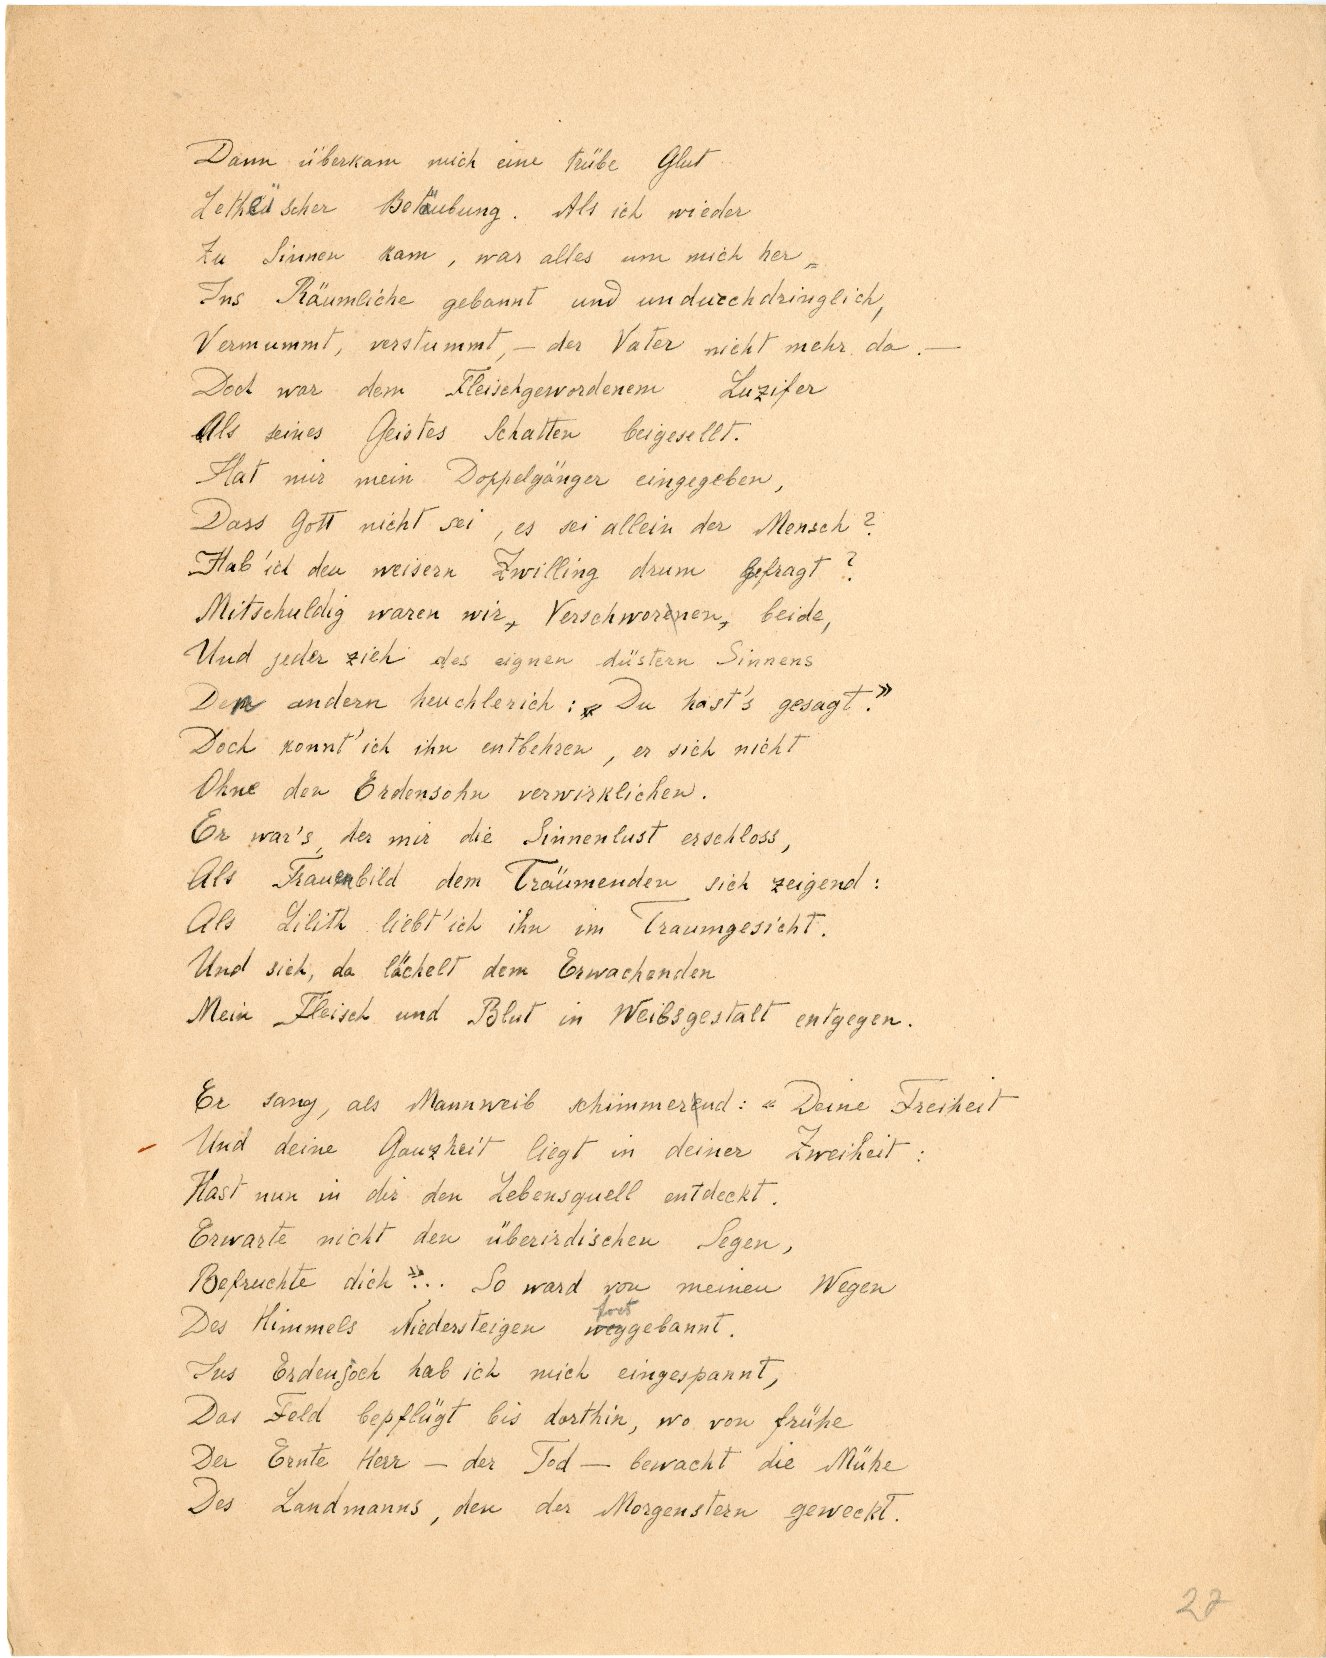 Dann überkam mich eine trübe Glut
Lethëischer Betäubung. Als ich wieder
Zu Sinnen kam, war alles um mich her
Ins Räumliche gebannt und undurchdringlich,
Vermummt, verstummt, – der Vater nicht mehr da. –
Doch war dem Fleischgewordenem Luzifer
Als seines Geistes Schatten beigesellt.
Hat mir mein Doppelgänger eingegeben,
Dass Gott nicht sei, es sei allein der Mensch?
Hab' ich den weisern Zwilling drum gefragt?
Mitschuldig waren wir, Verschwornen, beide,
Und jeder zieh des eignen düstern Sinnens
Den andern heuchlerich: « Du hast's gesagt.»
Doch konnt' ich ihn entbehren, er sich nicht
Ohne den Erdensohn verwirklichen.
Er war's, der mir die Sinnenlust erschloss,
Als Frauenbild dem Träumenden sich zeigend:
Als Lilith liebt' ich ihn im Traumgesicht.
Und sieh, da lächelt dem Erwachenden
Mein Fleisch und Blut in Weibsgestalt entgegen.
Er sang, als Mannweib schimmernd: « Deine Freiheit
Und deine Ganzheit liegt in deiner Zweiheit:
Hast nun in dir den Lebensquell entdeckt.
Erwarte nicht den überirdischen Segen,
Befruchte dich »... So ward von meinen Wegen
fort
Des Himmels Niedersteigen weggebannt.
Ins Erdenjoch hab ich mich eingespannt,
Das Feld bepflügt bis dorthin, wo von frühe
Der Ernte Herr – der Tod – bewacht die Mühe
Des Landmanns, den der Morgenstern geweckt.
27